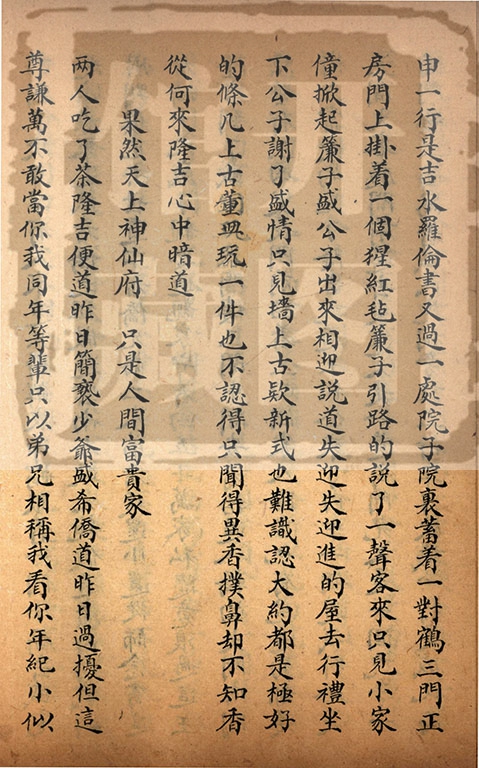 申一行是吉水羅倫書又過一處院子院裏蓄着一對鶴三門正
房門上掛着一個猩紅毡簾子引路的説了一聲客來只見小家
僮掀起簾子盛公子出來相迎説道失迎失迎進的屋去行禮坐
下公子謝了盛情只見墻上古欵新式也難識認大約都是極好
的條几上古董玩一件也不認得只聞得異香撲鼻却不知香
從何來隆吉心中暗道
果然天上神仙府 只是人間富貴家
两人吃了茶隆吉便道昨日簡褻少爺盛希僑道昨日過擾但這
尊謙萬不敢當你我同年等輩只以弟兄相稱我看你年紀小似